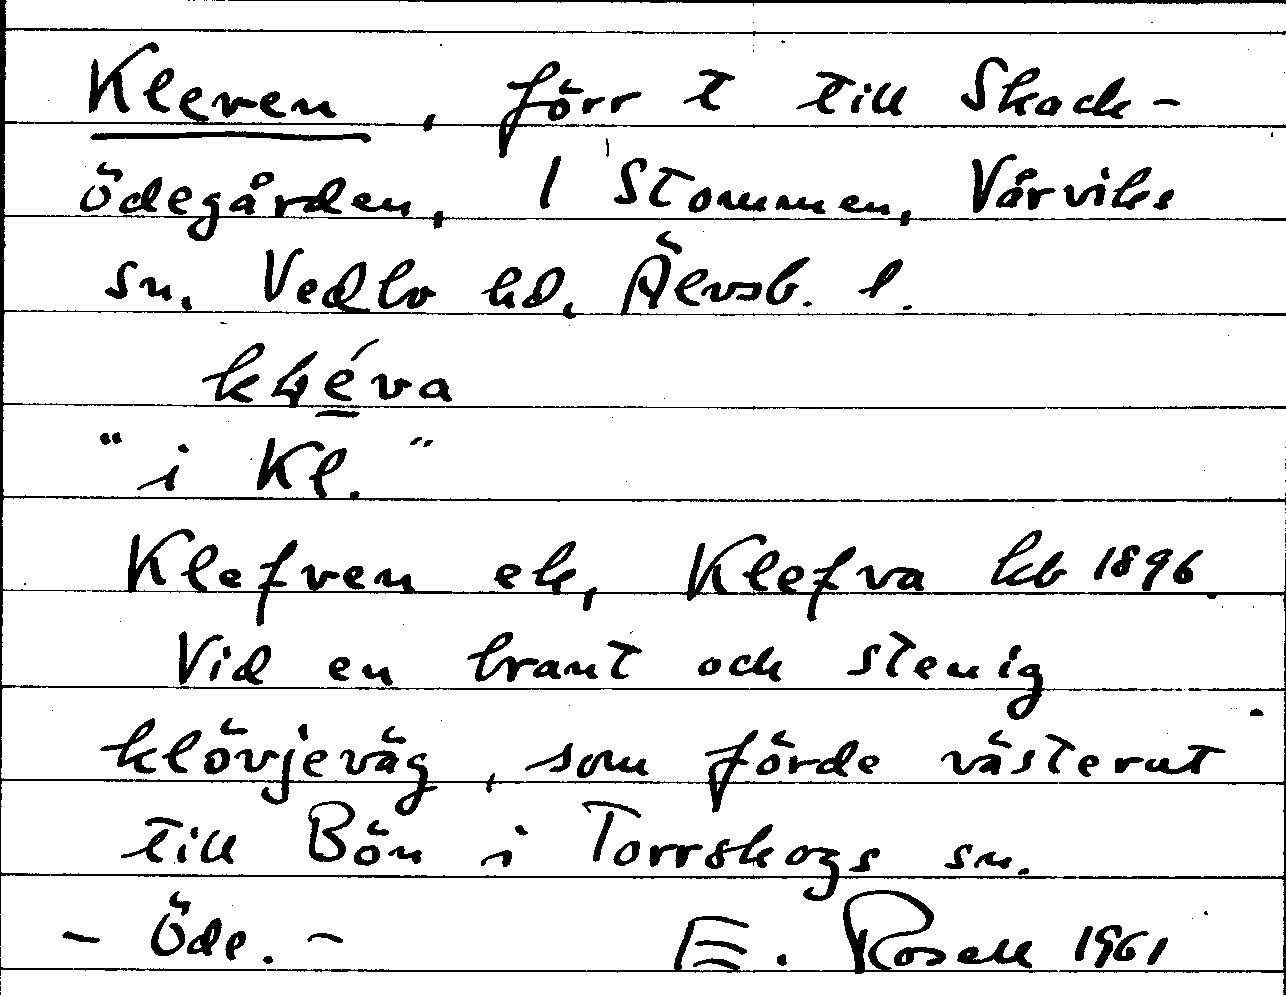 Kleven, förr t till Skack-
ödegården, 1 Stommen, Vårviks
sn. Vedbo hd. Älvsb. l.
kɫéva
"i Kl."
Klefven ek, Klefva kb 1896.
Vid en brant och stenig
klövjeväg, som förde västerut
till Bön i Torrskogs sn.
- Öde. - E. Rosell 1961